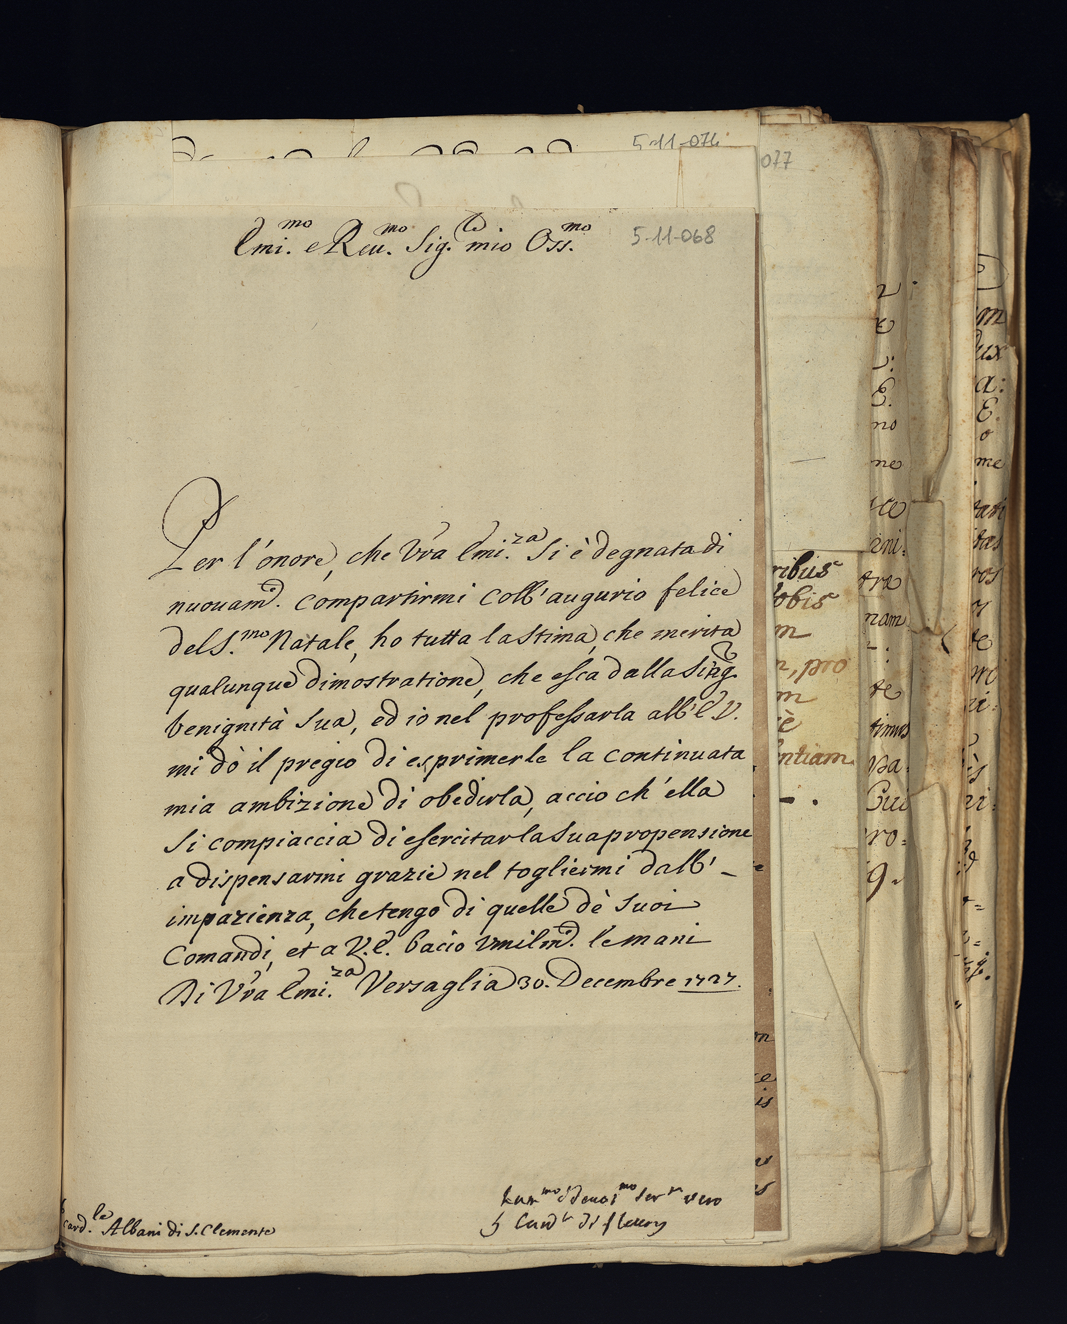 5-11-074
077
Emi.mo e Reu.mo Sig.re mio Oss.mo
5-11-068
Per l'onore, che Vrã Emi.za si è degnata di
nuouam.e compartirmi coll'augurio felice
del S.mo Natale, ho tutta la stima, che merita
qualunque dimostratione, che esca dalla sing.re
benignità sua, ed io nel professarla all'E.V.
mi dò il pregio di esprimerle la continuata
mia ambizione di obedirla, accio ch'ella
si compiaccia di esercitar la sua propensione
a dispensarmi grazie nel togliermi dall'-
impazienza, che tengo di quelle dè suoi
Comandi, et a V.E. bacio vmilm.e le mani
Di Vrã Emi.za Versaglia 30. Decembre 1727.
card.le Albani di S. Clemente
hum.mo et deuot.mo ser.r vero
Card.l di fleury
ribus
obis
m
n, pro
m
iè
entiam